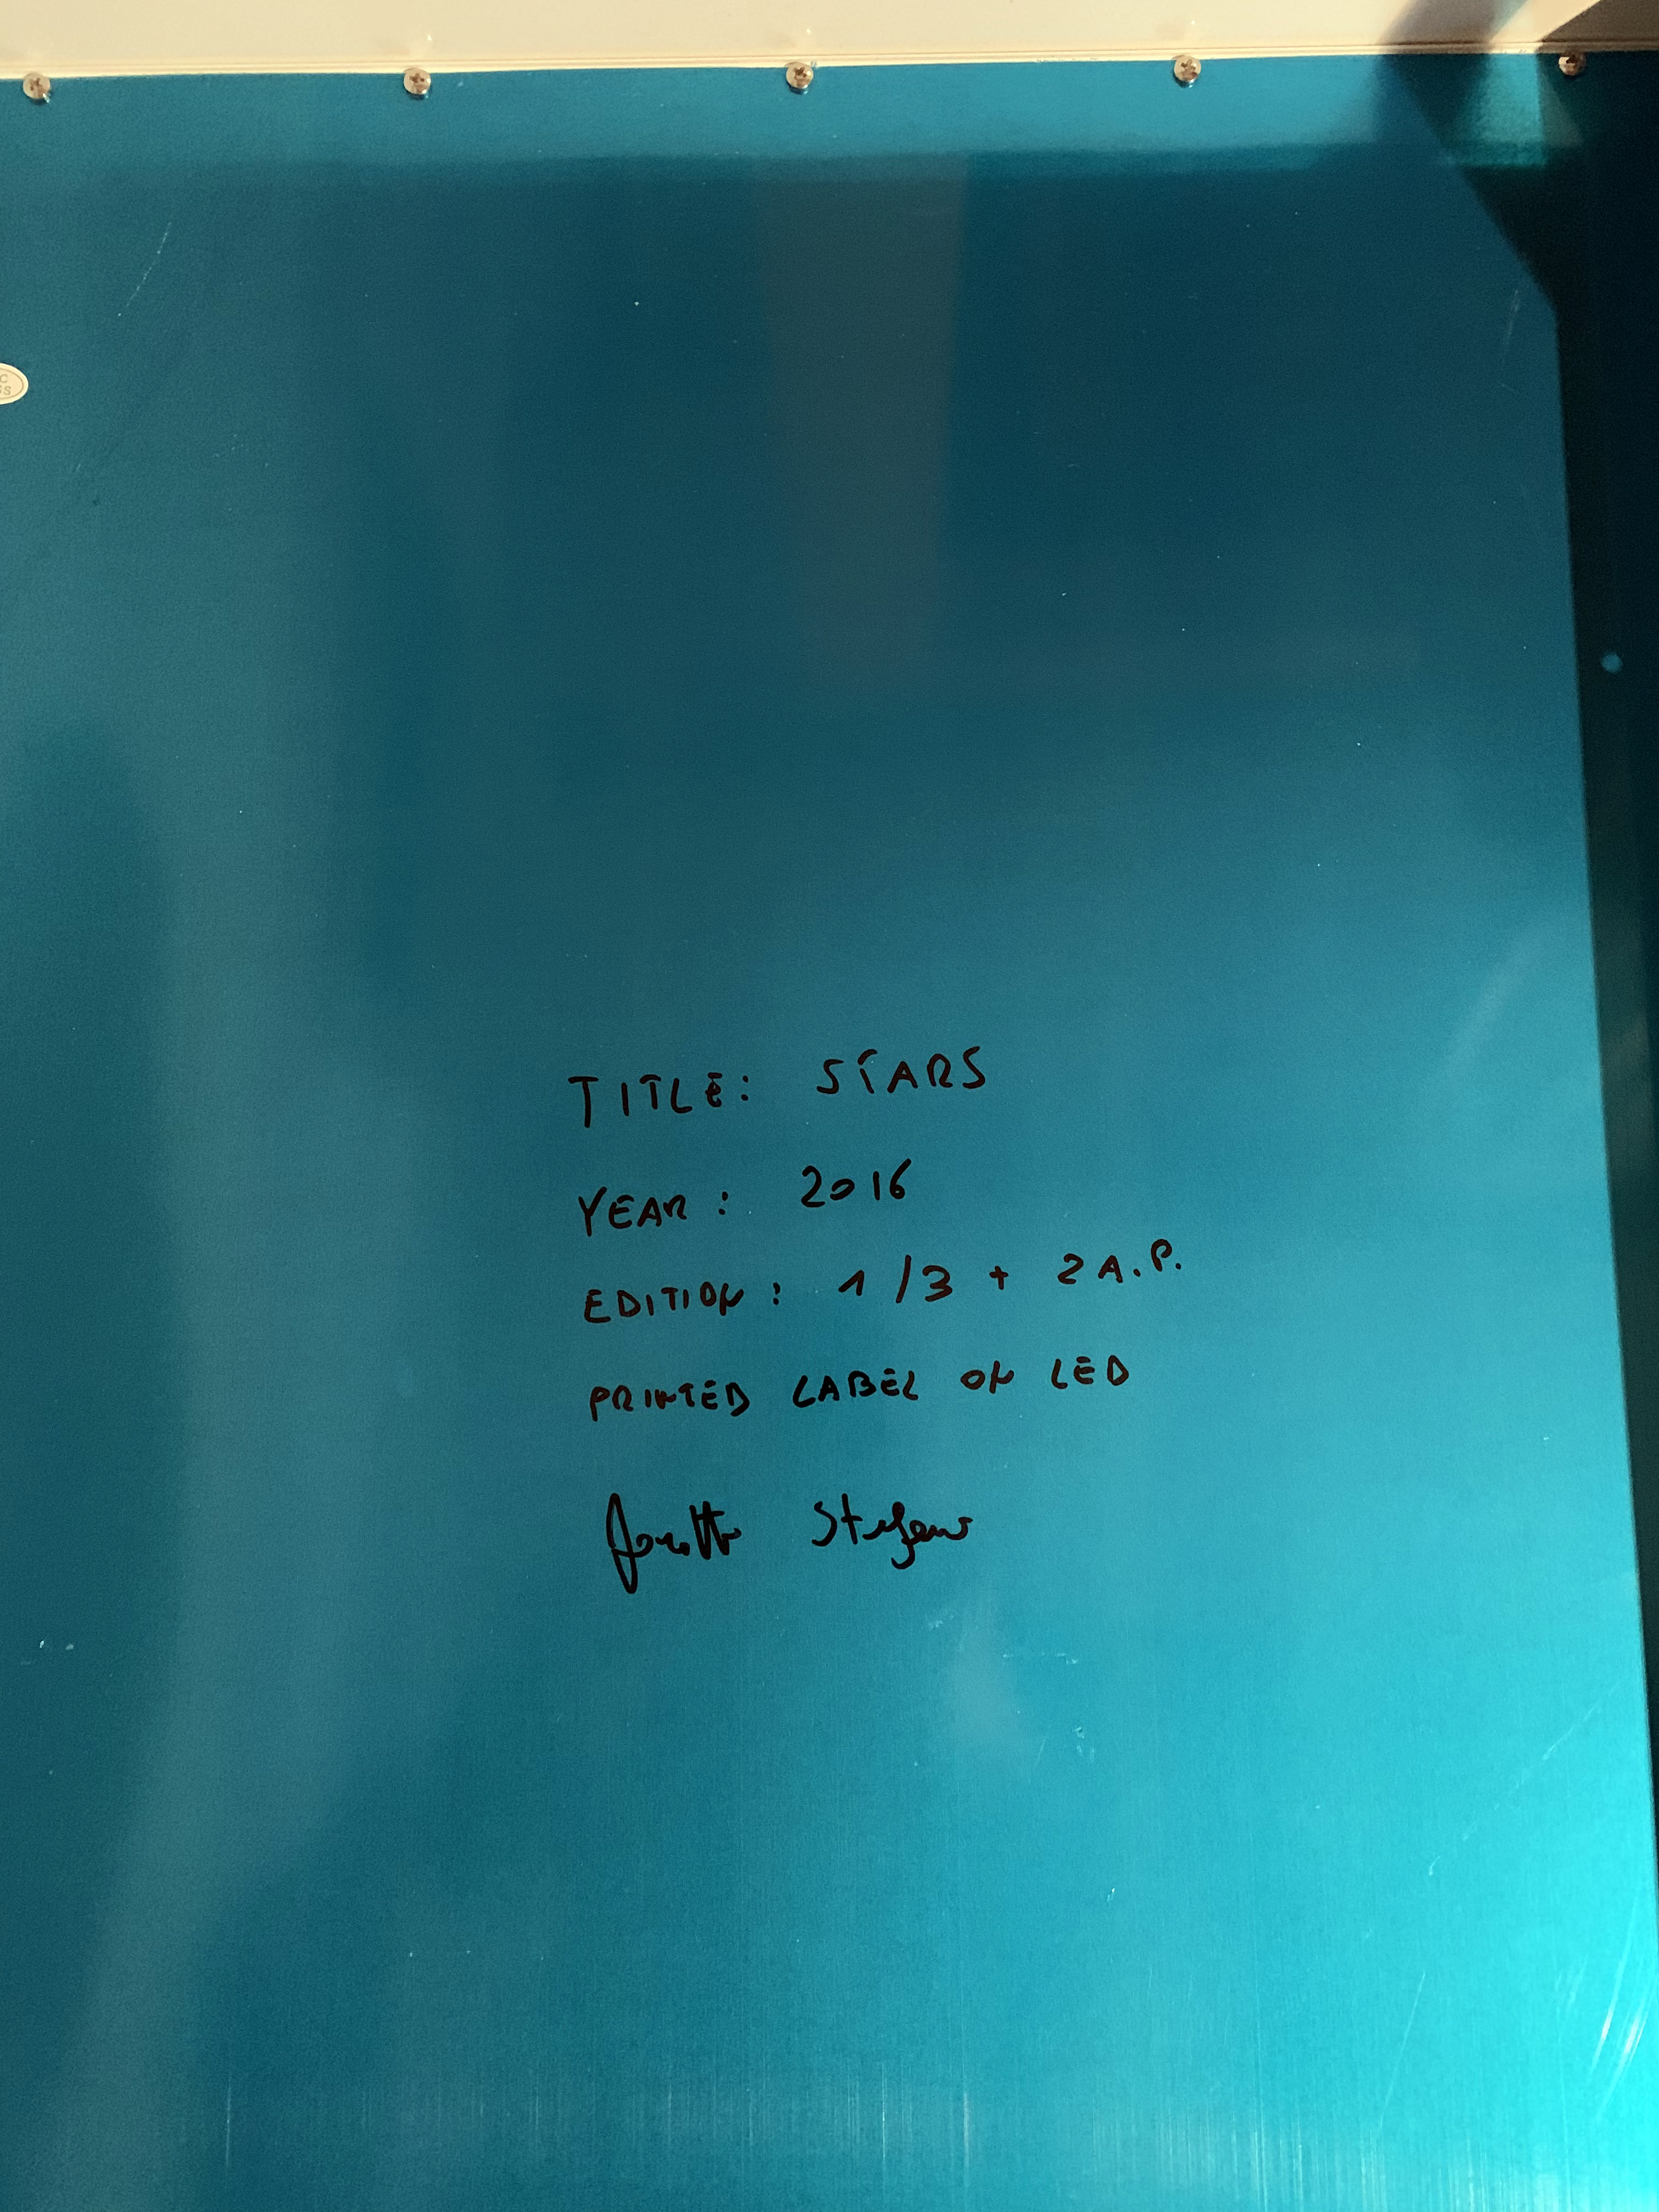 TITLE: STARS
YEAR: 2016
EDITION: 1/3 + 2 A.P.
PRINTED LABEL ON LED
Stefano